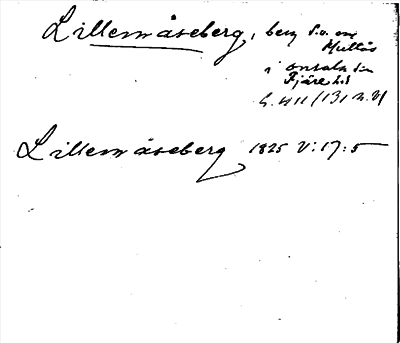 Lillemåseberg, berg S.o. om
Mullås
i Onsala sn
Fjäre hd
Lillemåseberg 1825 V:17:5